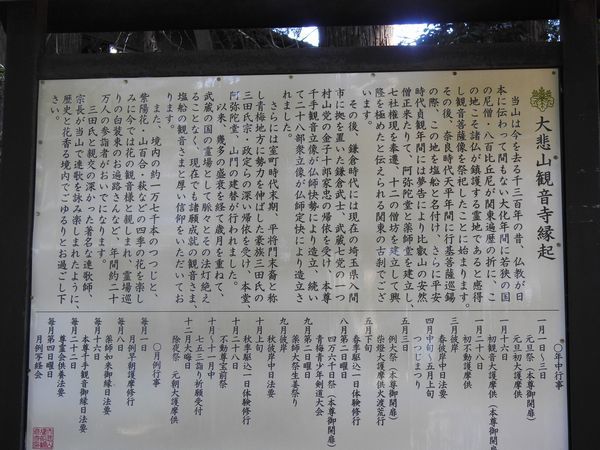 大悲山観音寺縁起
当山は今を去る千三百年の昔、仏教が日
本に伝わって間もない大化年間に若狭の国
の尼僧・八百比丘尼が関東遍歴の折に、こ
の地こそ諸仏が鎮護する霊地であると感得
し観音菩薩像を祭祀したことに始まります。
その後、奈良時代天平年間に行基菩薩巡錫
の際、この地を塩船と名付け、さらに平安
時代貞観年間には夢告により比叡山の安然
僧正来たりて、阿弥陀堂と薬師堂を建立し、
七社権現を奉遷、十二の僧坊を建立して興
隆を極めたと伝えられる関東の古刹でござ
います。
その後、鎌倉時代には現在の埼玉県入間
市に拠を置いた鎌倉武士、武蔵七党の一つ
村山党の金子十郎家忠の帰依を受け、本尊
千手観音立像が仏師快勢により造立、続い
て二十八部衆立像が仏師定快により造立さ
れました。
さらには室町時代末期、平将門末裔と称
し青梅地方に勢力を伸ばした豪族三田氏の
三田氏宗・政定らの深い帰依を受け、本堂、
阿弥陀堂、山門の建替が行われました。
以来、幾多の盛衰を経て歳月を重ねて、
武蔵の国の霊場として脈々とその法灯絶え
ることとなく、現在でも諸願成就の観音さま、
塩船の観音さまと厚い信仰をいただいてお
ります。
また、境内の約一万七千本のつつじと、
紫陽花・山百合・萩などの四季の花を楽し
みに今では花の観音様と親しまれ、霊場巡
りの白装束のお遍路さんなど、年間約三十
万人の参詣者がおいでになります。
三田氏と親交の深かった著名な連歌師、
宗長が当山で連歌を詠み楽しまれたように、
歴史と花香る境内でごゆるりとお過ごし下
さい。
◎年中行事
一月一日〜三日
元旦祭（本尊御開扉）
元旦初大護摩供
一月十六日
初観音大護摩供（本尊御開扉）
一月二十八日
初不動護摩供
三月彼岸
春彼岸中日法要
四月中旬〜五月上旬
つつじまつり
五月三日
例大祭（本尊御開扉）
柴燈大護摩供火渡荒行
五月下旬
春季駆込一日体験修行
八月第二日曜日
四万六千日祭（本尊御開扉）
青梅青少年剣道大会
九月第二日曜日
薬師大祭生姜祭り
九月彼岸
秋彼岸中日法要
十月上旬
秋季駆込一日体験修行
十月十八日
不動尊宝前祭
十月〜十一月中
七五三詣り祈願受付
十二月大晦日
除夜祭 元朝大護摩供
◎月例行事
毎月一日
月例早朝護摩修行
毎月八日
薬師如来御縁日法要
毎月十六日
本尊千手観音御縁日法要
毎月二十二日
尊霊会供養法要
毎月第四日曜日
月例写経会